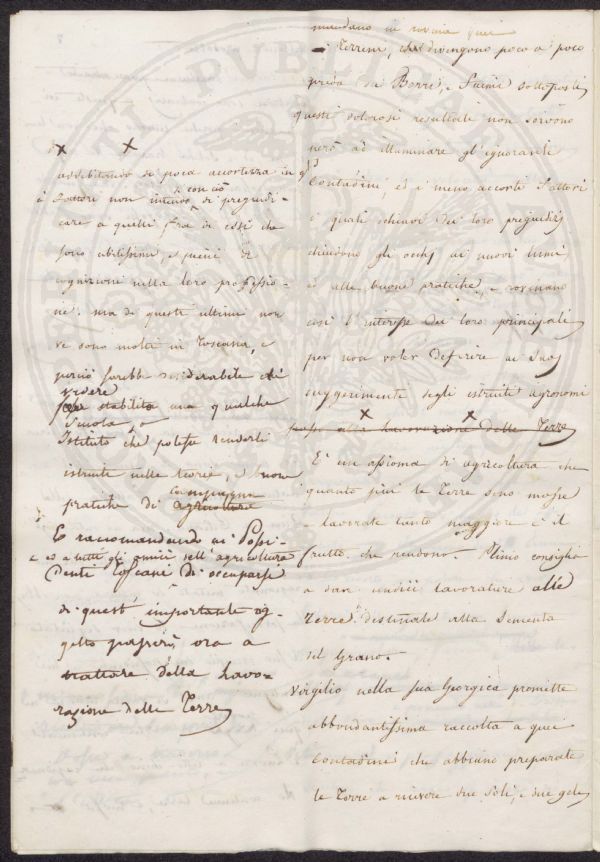 mandano in rovina quei
Terreni, che divengono poco a poco
preda di Borri, e Fiumi sottoposti
questi dolorosi resultati non servono
però ad illuminare gl'ignoranti
Contadini, ed i meno accorti Fattori
i quali schiavi dei loro pregiudizj
chiudono gli occhj ai nuovi lumi,
ed alle buone pratiche, e rovinano
così l'interesse dei loro principali
per non voler deferire ai Savj
suggerimenti degli istruiti agronomi
alla lavorazione delle Terre
È un assioma di agricoltura che
quanto più le Terre sono mosse
e lavorate tanto maggiore è il
frutto, che rendono. Plinio consiglia
a dare undici lavorature alle
Terre destinate alla Sementa
del Grano.
Virgilio nella sua Georgica promette
abbondantissima raccolta a quei
Contadini che abbiano preparate
le Terre a ricevere due Soli, e due geli
x x
addebitando di poca accortezza in
i Fattori non intendo con ciò di pregiudi-
care a quelli fra di essi che
sono abilissimi, e pieni di
cognizioni nella loro professio-
ne. ma di questi ultimi non
ve sono molti in Toscana, e
perciò sarebbe desiderabile di
vedere
stabilita una qualche
Scuola, o
Istituto che potesse renderli
istruiti nelle teorie, e buone
pratiche di campagna
agricoltura
E raccomandando ai Possi-
e ed a tutti gli amici dell'agricoltura
denti Toscani di occuparsi
di quest'importante og-
getto passerò ora a
trattare della Lavo-
razione delle Terre